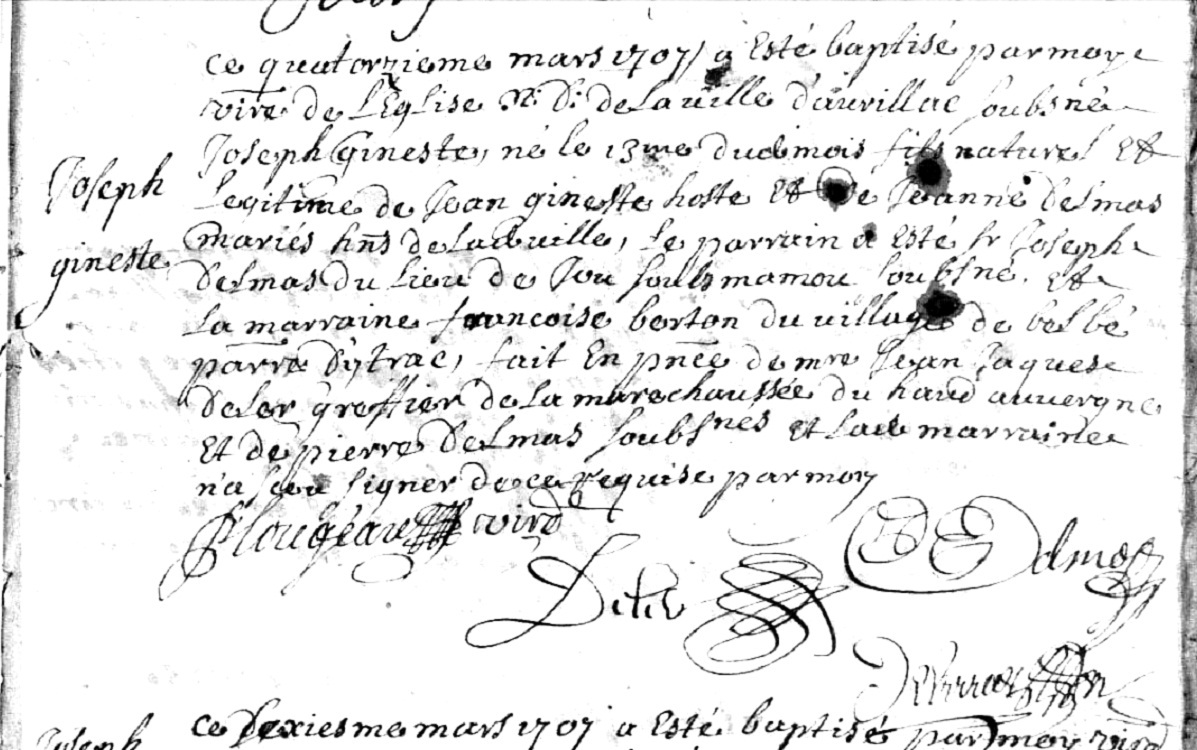 Joseph
gineste
ce quatorzieme mars 1707 a Esté baptisé par moy
vire de lEglise N. D. de la ville d'aurillac soubsné
Joseph gineste, né le 13me dud mois fils naturel Et
Legitime de Jean gineste hoste Et de Jeanne Delmas
mariés hñs de lad ville, Le parrain a Esté sr Joseph
Delmas du Lieu de Jou soubs mamou soubsné. Et
La marraine francoise borton du village de belbé
parre Dytrac, fait En pnce de mre Jean Jaques
Deler greffier de la marechaussée du haud auvergne
Et de pierre Delmas soubsnés et lad marraine
n'a sceu signer de ce requise par moy
vire
Delmas
ce dexiesme mars 1707 a Esté baptisé par moy vire
Joseph